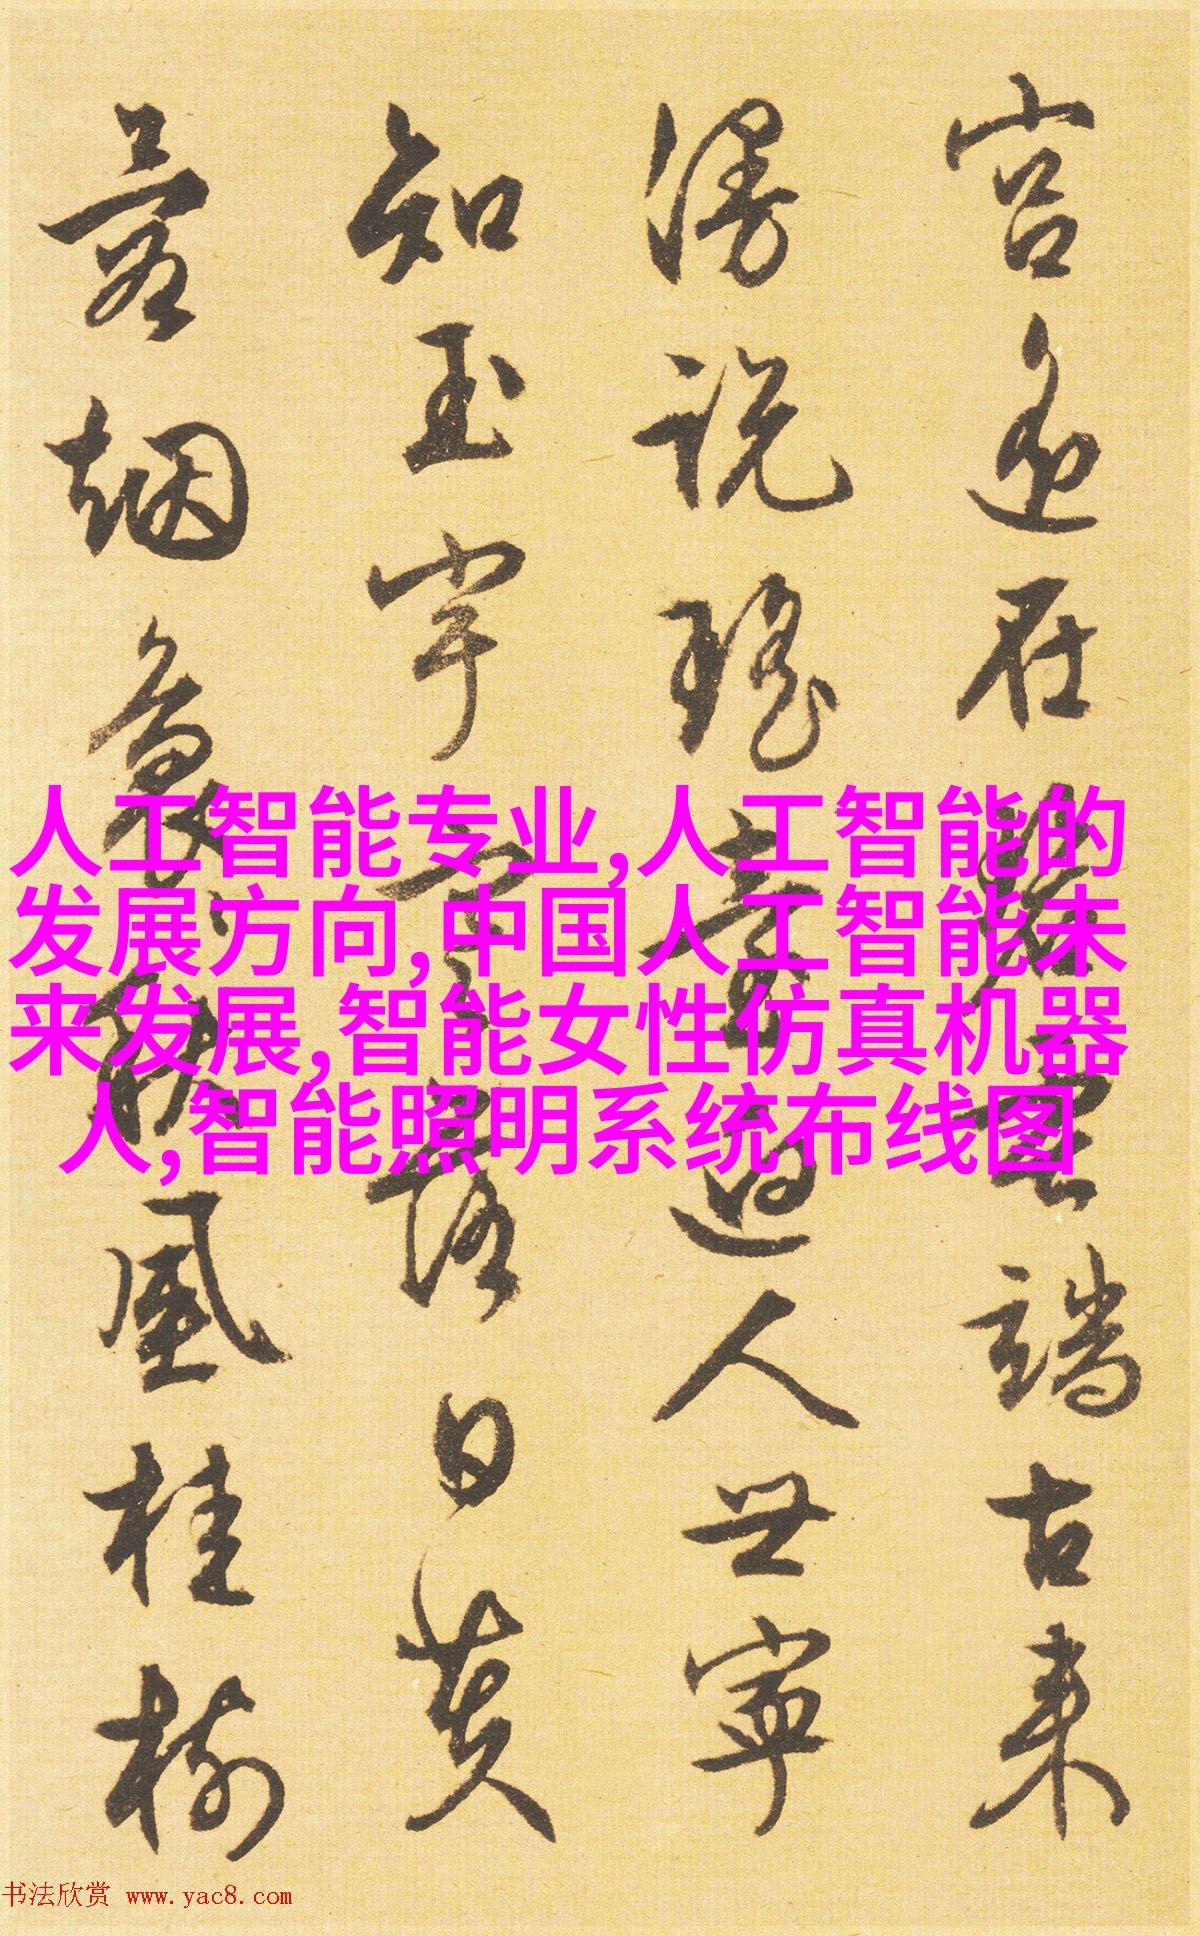 宫在碧雲端古来
漫説瑶臺人世寧
知玉宇日
烟秋風桂樹
人工智能专业,人工智能的
发展方向,中国人工智能未
来发展,智能女性仿真机器
人,智能照明系统布线图
书法欣赏 www.yac8.com